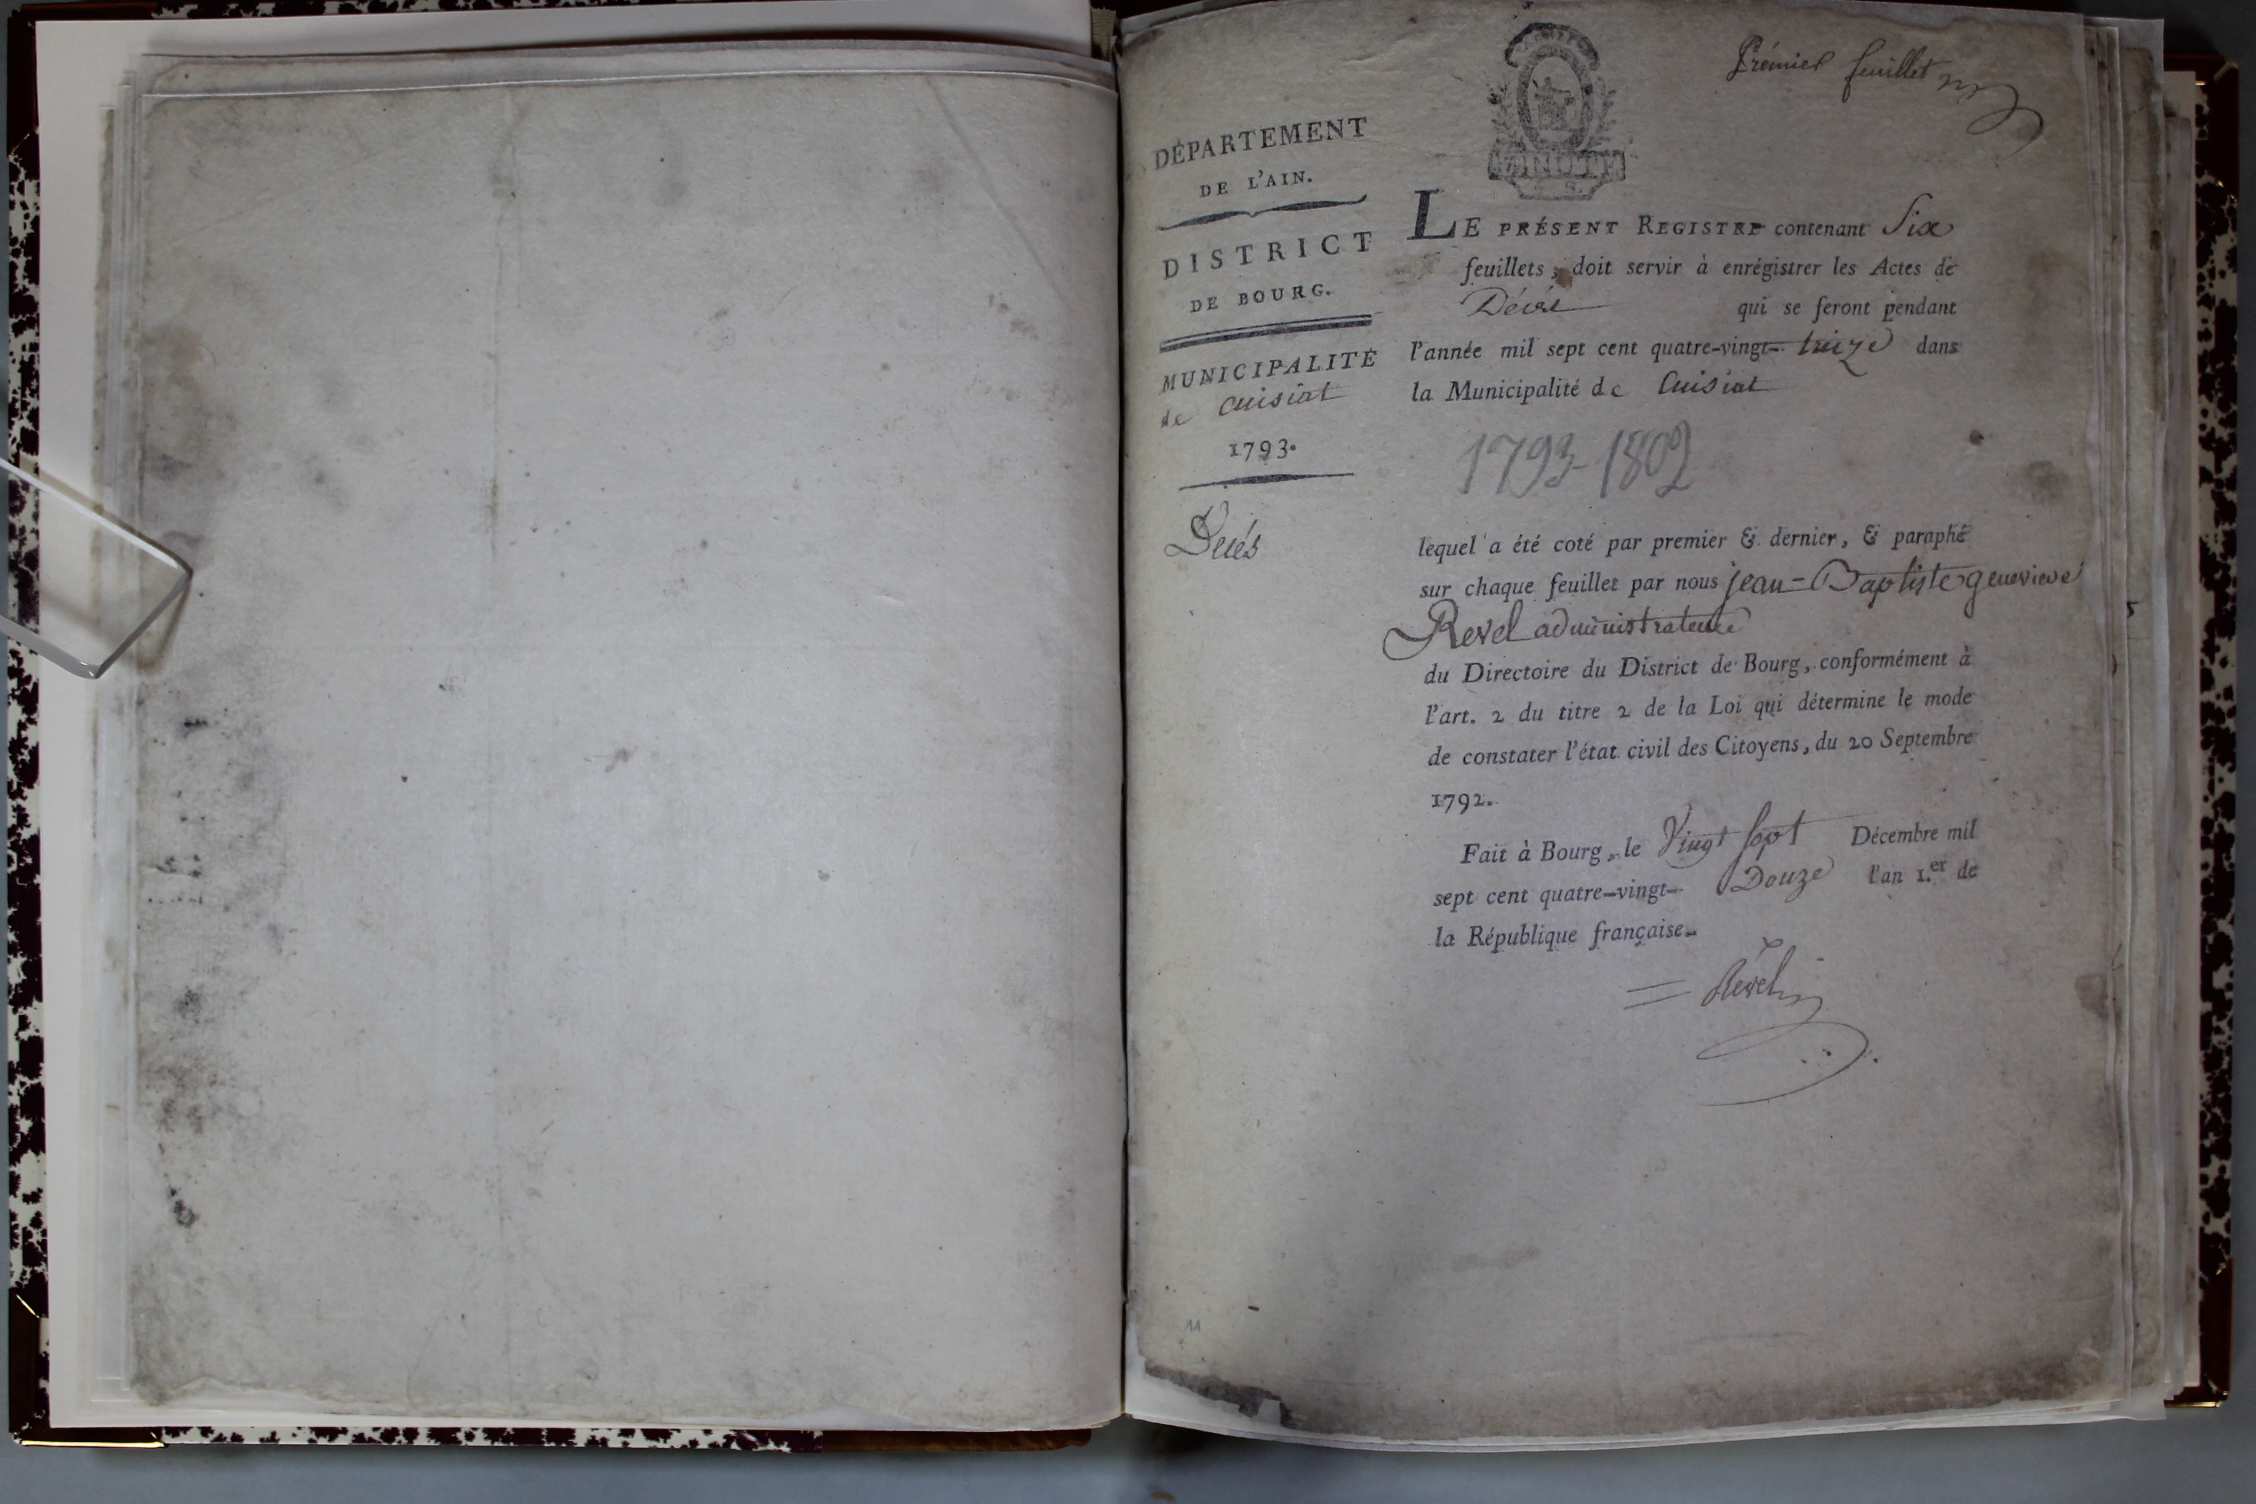 Prémier feuillet
DÉPARTEMENT
DE L'AIN.
DISTRICT
DE BOURG.
MUNICIPALITÉ
de cuisiat
1793.
Decés
LE PRÉSENT REGISTRE contenant Six
feuillets, doit servir à enrégistrer les Actes de
Décès qui se feront pendant
l'année mil sept cent quatre-vingt- treize dans
la Municipalité de Cuisiat
1793-1802
lequel a été coté par premier & dernier, & paraphé
sur chaque feuillet par nous jean-Baptiste genevieve
Revel administrateur
du Directoire du District de Bourg, conformément à
l'art. 2 du titre 2 de la Loi qui détermine le mode
de constater l'état civil des Citoyens, du 20 Septembre
1792.
Fait à Bourg, le Vingt sept Décembre mil
sept cent quatre-vingt- Douze l'an 1.er de
la République française.
Revel
11